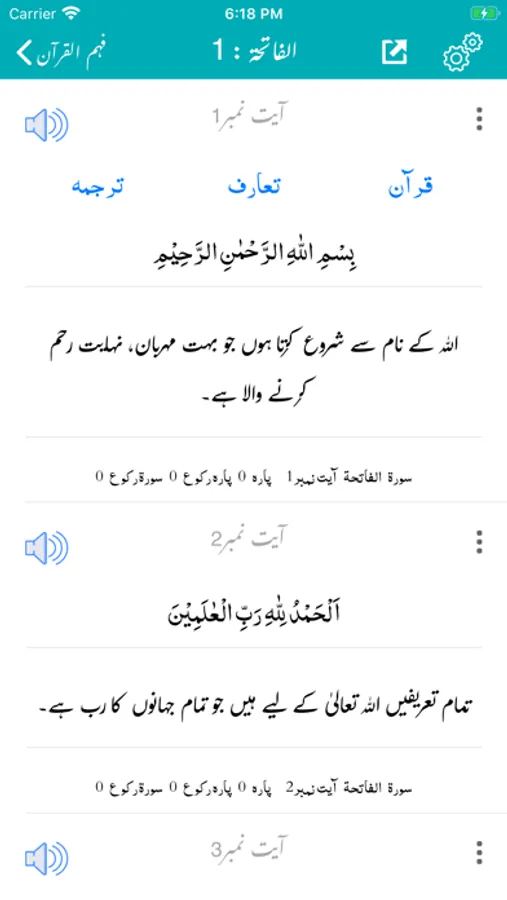 Carrier 6:18 PM
فہم القرآن الفاتحة : 1
آیت نمبر1
قرآن تعارف ترجمہ
بِسْمِ اللّٰهِ الرَّحْمٰنِ الرَّحِيْمِ
اللہ کے نام سے شروع کرتا ہوں جو بہت مہربان، نہایت رحم
کرنے والا ہے۔
سورة الفاتحة آیت نمبر1 پارہ 0 پارہ رکوع 0 سورة رکوع 0
آیت نمبر2
اَلْحَمْدُ لِلّٰهِ رَبِّ الْعٰلَمِيْنَ
تمام تعریفیں اللہ تعالیٰ کے لیے ہیں جو تمام جہانوں کا رب ہے۔
سورة الفاتحة آیت نمبر2 پارہ 0 پارہ رکوع 0 سورة رکوع 0
آیت نمبر3